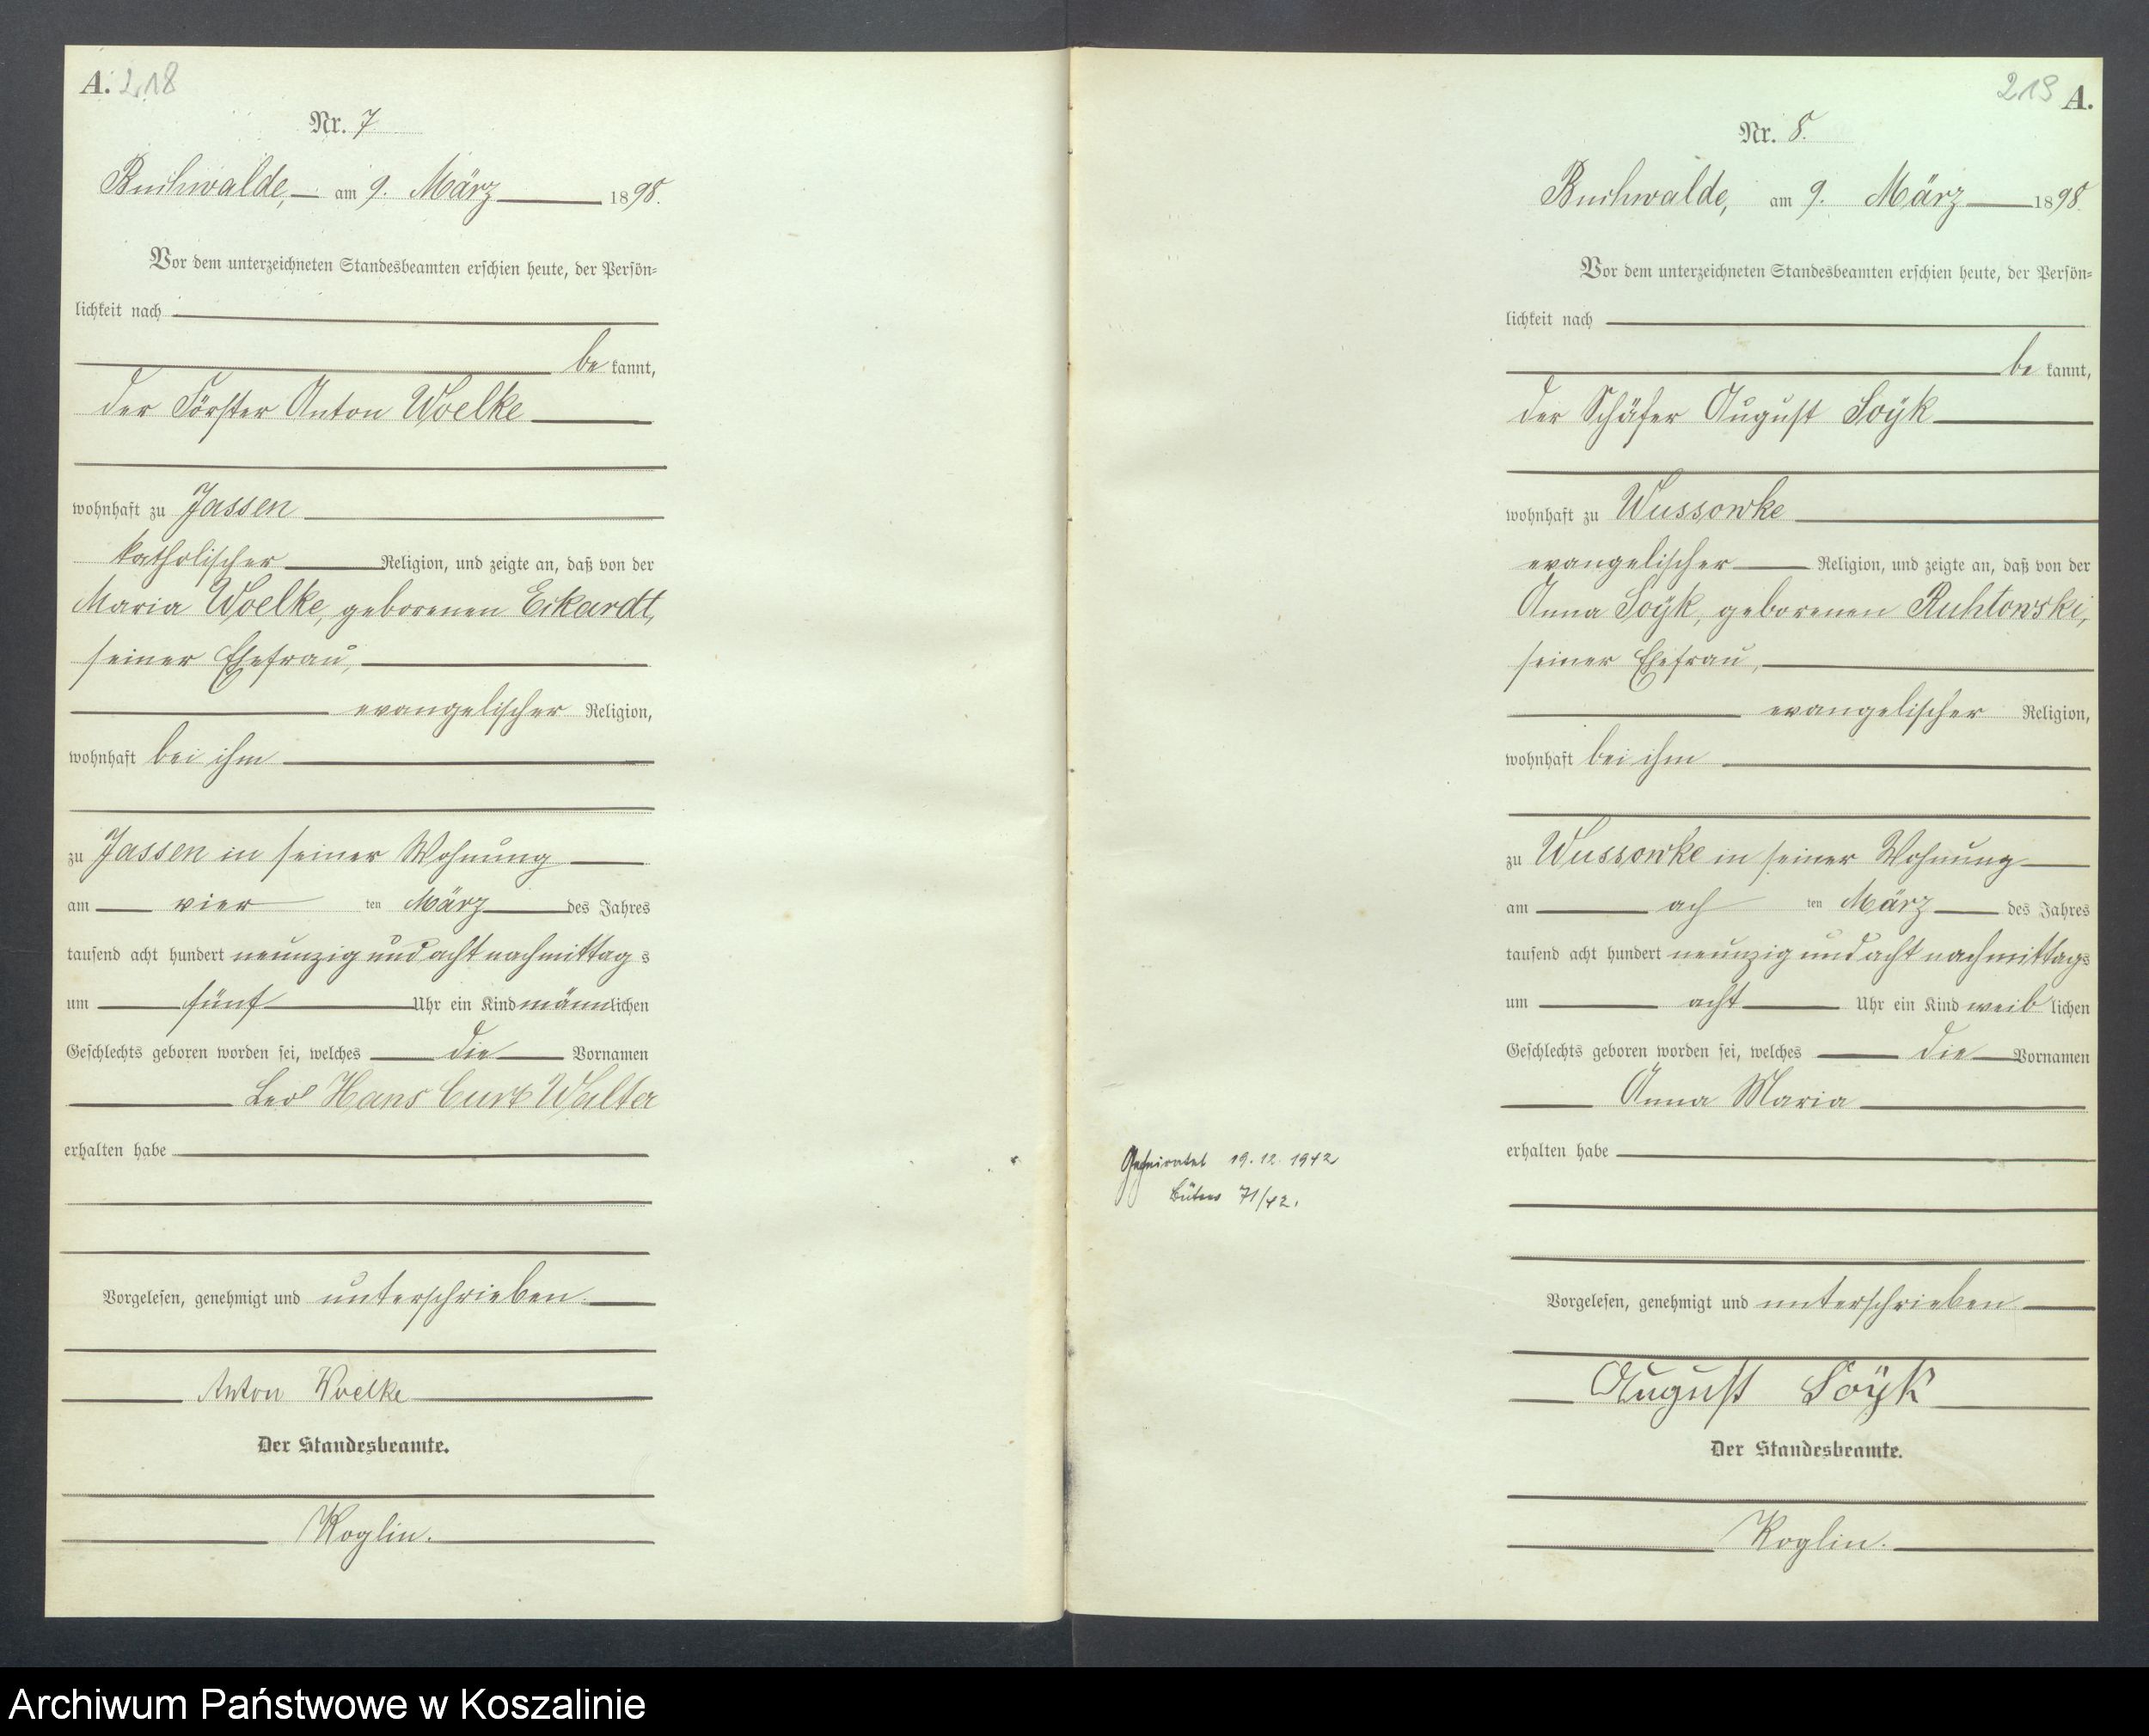 A. 218
Nr. 7
Buchwalde, am 9. März 1898.
Vor dem unterzeichneten Standesbeamten erschien heute, der Persön=
lichkeit nach
be kannt,
der Förster Anton Woelke
wohnhaft zu Jassen
katholischer Religion, und zeigte an, daß von der
Maria Woelke, geborenen Eckardt,
seiner Ehefrau,
evangelischer Religion,
wohnhaft bei ihm
zu Jassen in seiner Wohnung
am vier ten März des Jahres
tausend acht hundert neunzig und acht nachmittag s
um fünf Uhr ein Kind männlichen
Geschlechts geboren worden sei, welches die Vornamen
Hans Curt Walter
erhalten habe
Vorgelesen, genehmigt und unterschrieben
Anton Woelke
Der Standesbeamte.
Koglin.
219 A.
Nr. 8.
Buchwalde, am 9. März 1898.
Vor dem unterzeichneten Standesbeamten erschien heute, der Persön=
lichkeit nach
be kannt,
der Schäfer August Soÿk
wohnhaft zu Wussowke
evangelischer Religion, und zeigte an, daß von der
Anna Soÿk, geborenen Ruhtowski,
seiner Ehefrau,
evangelischer Religion,
wohnhaft bei ihm
zu Wussowke in seiner Wohnung
am ach ten März des Jahres
tausend acht hundert neunzig und acht nachmittags
um acht Uhr ein Kind weib lichen
Geschlechts geboren worden sei, welches die Vornamen
Anna Maria
erhalten habe
Geheiratet 19.12.1942
Bütow 71/42.
Vorgelesen, genehmigt und unterschrieben
August Soÿk
Der Standesbeamte.
Koglin.
Archiwum Państwowe w Koszalinie